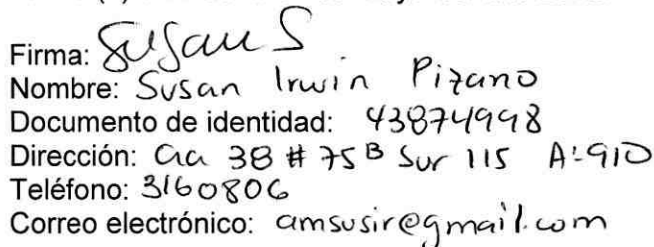 Firma: Susan S
Nombre: Susan Irwin Pizano
Documento de identidad: 43874998
Dirección: Cra 38 # 75B Sur 115 A:910
Teléfono: 3160806
Correo electrónico: amsusir@gmail.com